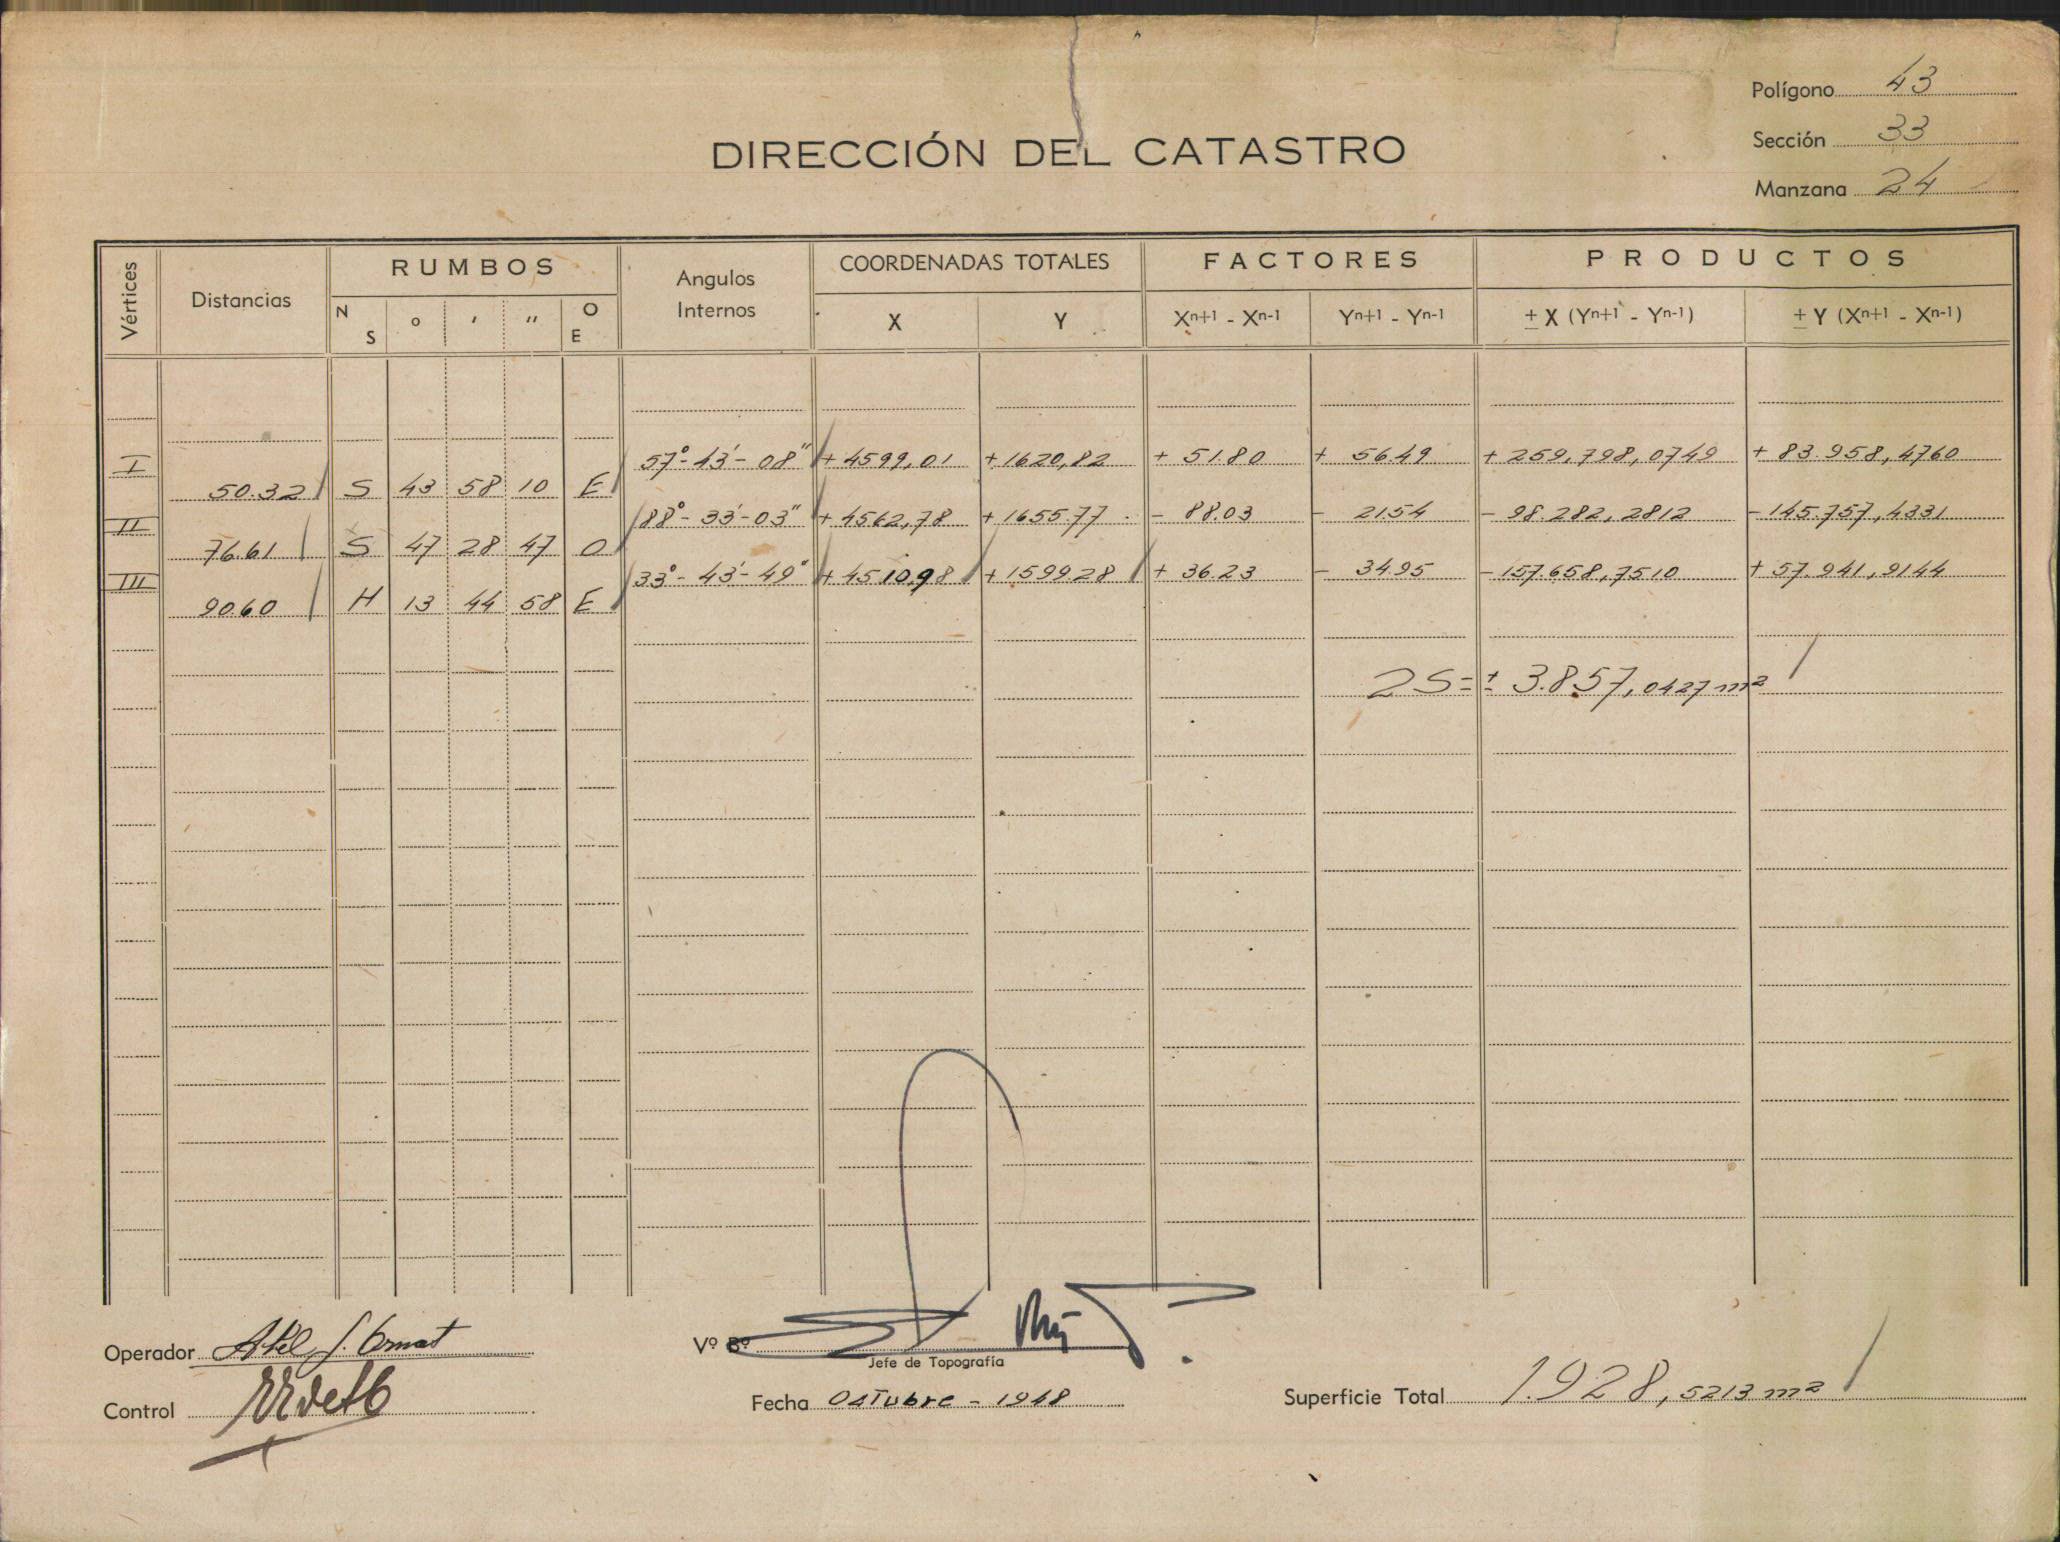 Polígono 43
DIRECCIÓN DEL CATASTRO
Sección 33
Manzana 24
Vértices Distancias RUMBOS Angulos Internos COORDENADAS TOTALES FACTORES PRODUCTOS
N S o ′ ″ O E X Y Xn+1 - Xn-1 Yn+1 - Yn-1 ± X (Yn+1 - Yn-1) ± Y (Xn+1 - Xn-1)
I 57°-43′-08″ +4599,01 +1620,82 + 51.80 + 56.49 + 259,798,0749 + 83.958,4760
50.32 S 43 58 10 E
II 88°-33′-03″ +4562,78 +1655.77 - 88.03 - 21.54 - 98.282,2812 -145.757,4331
76.61 S 47 28 47 O
III 33°-43′-49″ +4510.98 +1599 28 + 36.23 - 34.95 -157.658,7510 + 57.941,9144
90.60 N 13 44 58 E
2S=± 3.857,0427 m2
Operador
Vº Bº
Jefe de Topografía
Control
Fecha Octubre - 1948
Superficie Total 1.928,5213 m2